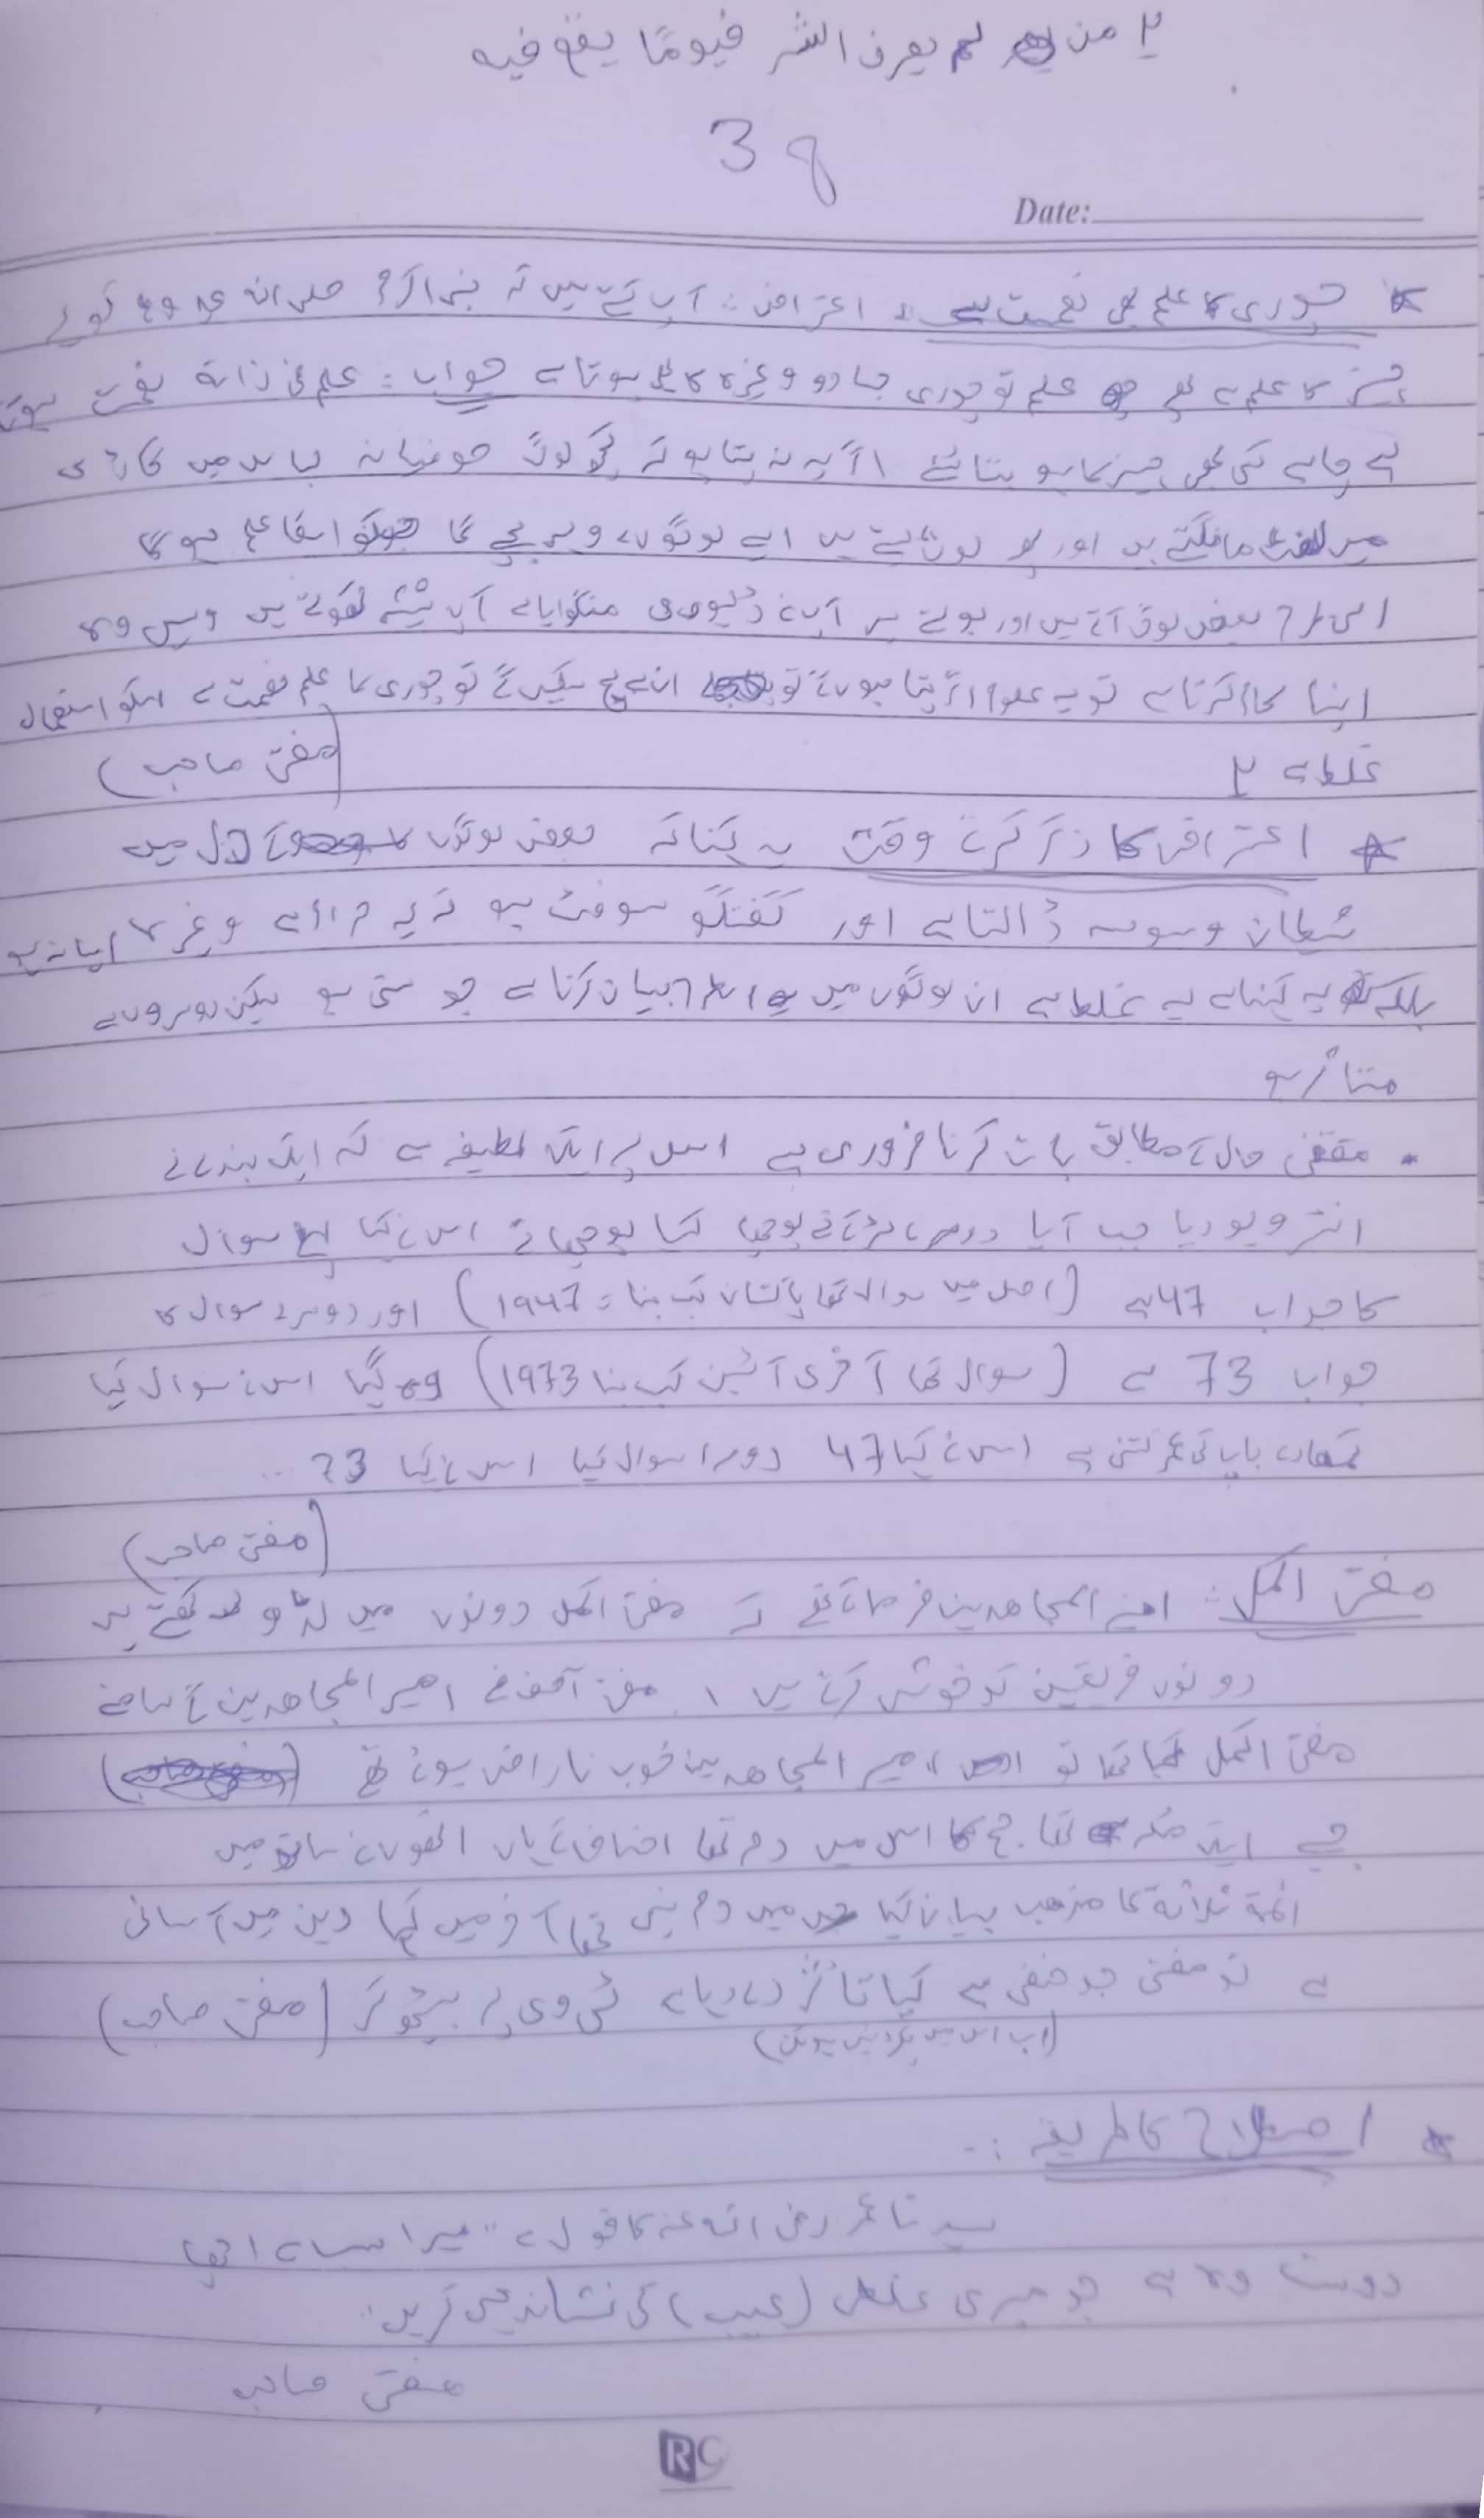 ۲ من لم يعرف الشر فيومًا يقع فيه
39
Date:
* چوری کا علم بھی نعمت ہے ، اعتراض : آپ کہتے ہیں کہ نبی اکرم صلی اللہ علیہ وسلم کو ہر
چیز کا علم ہے علم تو چوری جادو وغیرہ کا بھی ہوتا ہے جواب : علم فی ذاتہ نعمت ہوتا
ہے چاہے کسی بھی چیز کا ہو اگر یہ نہ پتا ہو کہ کچھ لوگ صوفیانہ لباس میں گاڑی
میں لفٹ مانگتے ہیں اور لوٹ لیتے ہیں ایسے لوگوں سے وہی بچے گا جسکو اسکا علم ہوگا
اسی طرح بعض لوگ آتے ہیں اور بولتے ہیں آپ نے ڈلیوری منگوایا ہے آپ شیشے کھولتے ہیں وہیں وہ
اپنا کام کرتا ہے تو یہ علوم اگر پتا ہوں گے تو ان سے بچ سکیں گے تو چوری کا علم نعمت ہے اسکو استعمال
غلط ہے ۲ (مفتی صاحب)
* اعتراض کا ذکر کرتے وقت یہ کہنا کہ بعض لوگوں کے دل میں
شیطان وسوسہ ڈالتا ہے اور گفتگو سوفٹ ہو کہ یہ حرام ہے وغیرہ ایسا نہ ہو
بلکہ یہ کہنا ہے یہ غلط ہے ان لوگوں میں اسطرح بیان کرنا ہے جو سنی ہو لیکن دوسروں سے
متاثر ہو
• مقتضی حال کے مطابق بات کرنا ضروری ہے اس پر ایک لطیفہ ہے کہ ایک بندے نے
انٹرویو دیا جب آیا دوسرے لڑکے نے پوچھا کیا پوچھا ہے اس نے کہا پہلے سوال
کا جواب 47 ہے (اصل میں سوال تھا پاکستان کب بنا : 1947) اور دوسرے سوال کا
جواب 73 ہے (سوال تھا آخری آئین کب بنا 1973) وہ گیا اس نے سوال کیا
تمھارے باپ کی عمر کتنی ہے اس نے کہا 47 دوسرا سوال کیا اس نے کہا 73 ...
(مفتی صاحب)
مفتی اکمل : امیر المجاہدین فرماتے تھے کہ مفتی اکمل دونوں میں لڈو رکھتے ہیں
دونوں فریقین کو خوش کرتے ہیں ، مفتی آصف نے امیر المجاہدین کے سامنے
مفتی اکمل کہا تھا تو امیر المجاہدین خوب ناراض ہوئے تھے
جیسے ایک مسئلہ تھا حج کا اس میں دم تھا احناف کے ہاں انھوں نے ساتھ میں
ائمۃ ثلاثۃ کا مذھب بیان کیا جس میں دم نہیں تھا آخر میں کہا دین میں آسانی
ہے تو مفتی جو حنفی ہے کیا تاثر دے رہا ہے ٹی وی پر بیٹھ کر (مفتی صاحب)
* اصلاح کا طریقہ :-
سیدنا عمر رضی اللہ عنہ کا قول ہے "میرا سب سے اچھا
دوست وہ ہے جو میری غلطی (عیب) کی نشاندہی کریں"
مفتی صاحب
RC